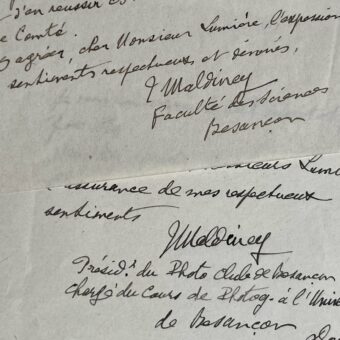 J'en réussir
e Comté.
agréer, cher Monsieur Lumière, l'expression
sentiments respectueux et dévoués,
J Maldiney
Faculté des Sciences
Besançon
Messieurs Lumi
l'assurance de mes respectueux
sentiments
J Maldiney
Présidt du Photo Club de Besançon
chargé du Cours de Photog. à l'Unive
de Besançon